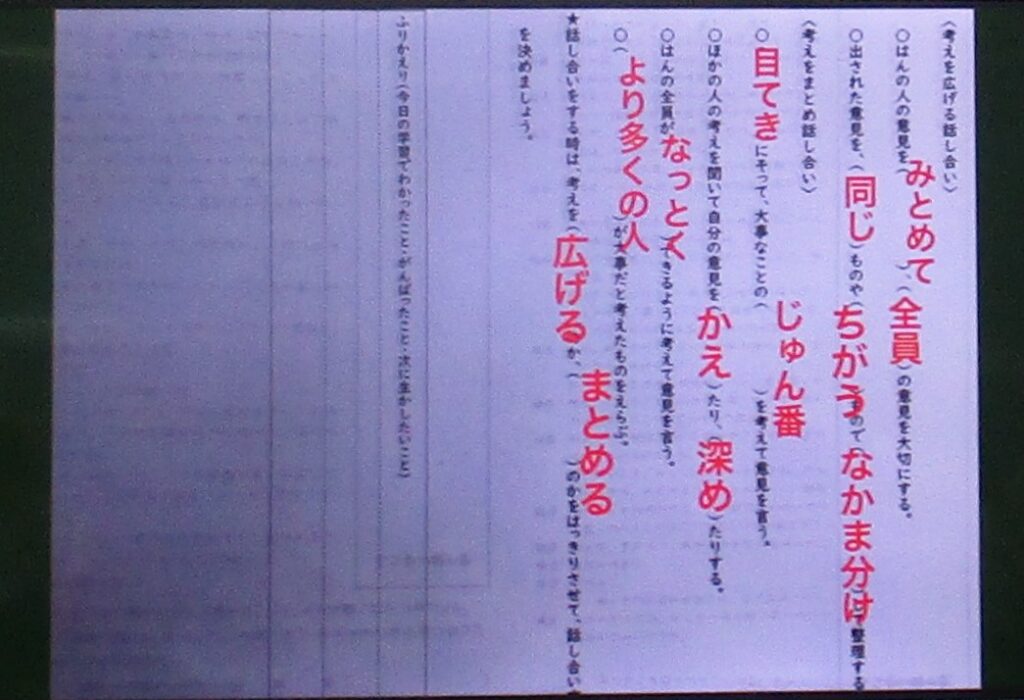 〈考えを広げる話し合い〉
○はんの人の意見を(みとめて)、(全員)の意見を大切にする。
○出された意見を、(同じ)ものや(ちがう)もので(なかま分け)して整理する
〈考えをまとめ話し合い〉
○目てきにそって、大事なことの(じゅん番)を考えて意見を言う。
○ほかの人の考えを聞いて自分の意見を(かえ)たり、(深め)たりする。
○はんの全員が(なっとく)できるように考えて意見を言う。
○(より多くの人)が大事だと考えたものをえらぶ。
★話し合いをする時は、考えを(広げる)か、(まとめる)のかをはっきりさせて、話し合い
を決めましょう。
ふりかえり(今日の学習でわかったこと・がんばったこと・次に生かしたいこと)